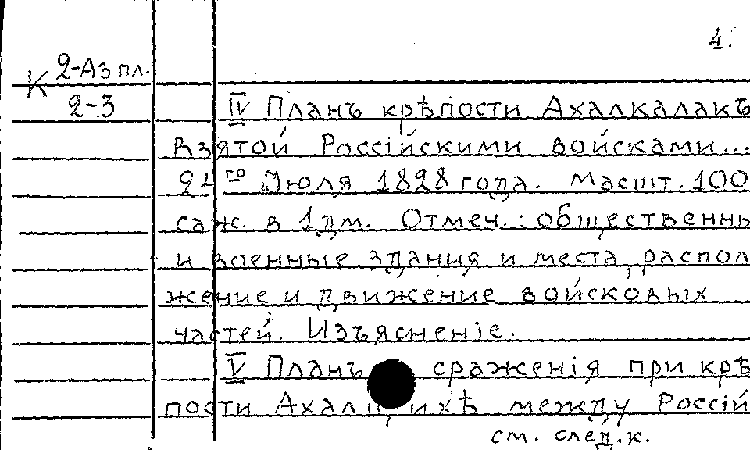 4.
К 2-Аз пл.
2-3
IV Планъ крѣпости Ахалкалакъ
взятой Россійскими войсками...
24го Июля 1828 года. Масшт. 100
саж. в 1 дм. Отмеч.: общественны
и военные здания и места, распол
жение и движение войсковых
частей. Изъясненіе.
V Планъ сраженія при крѣ
пости Ахалцихѣ между Россій
см. след. к.